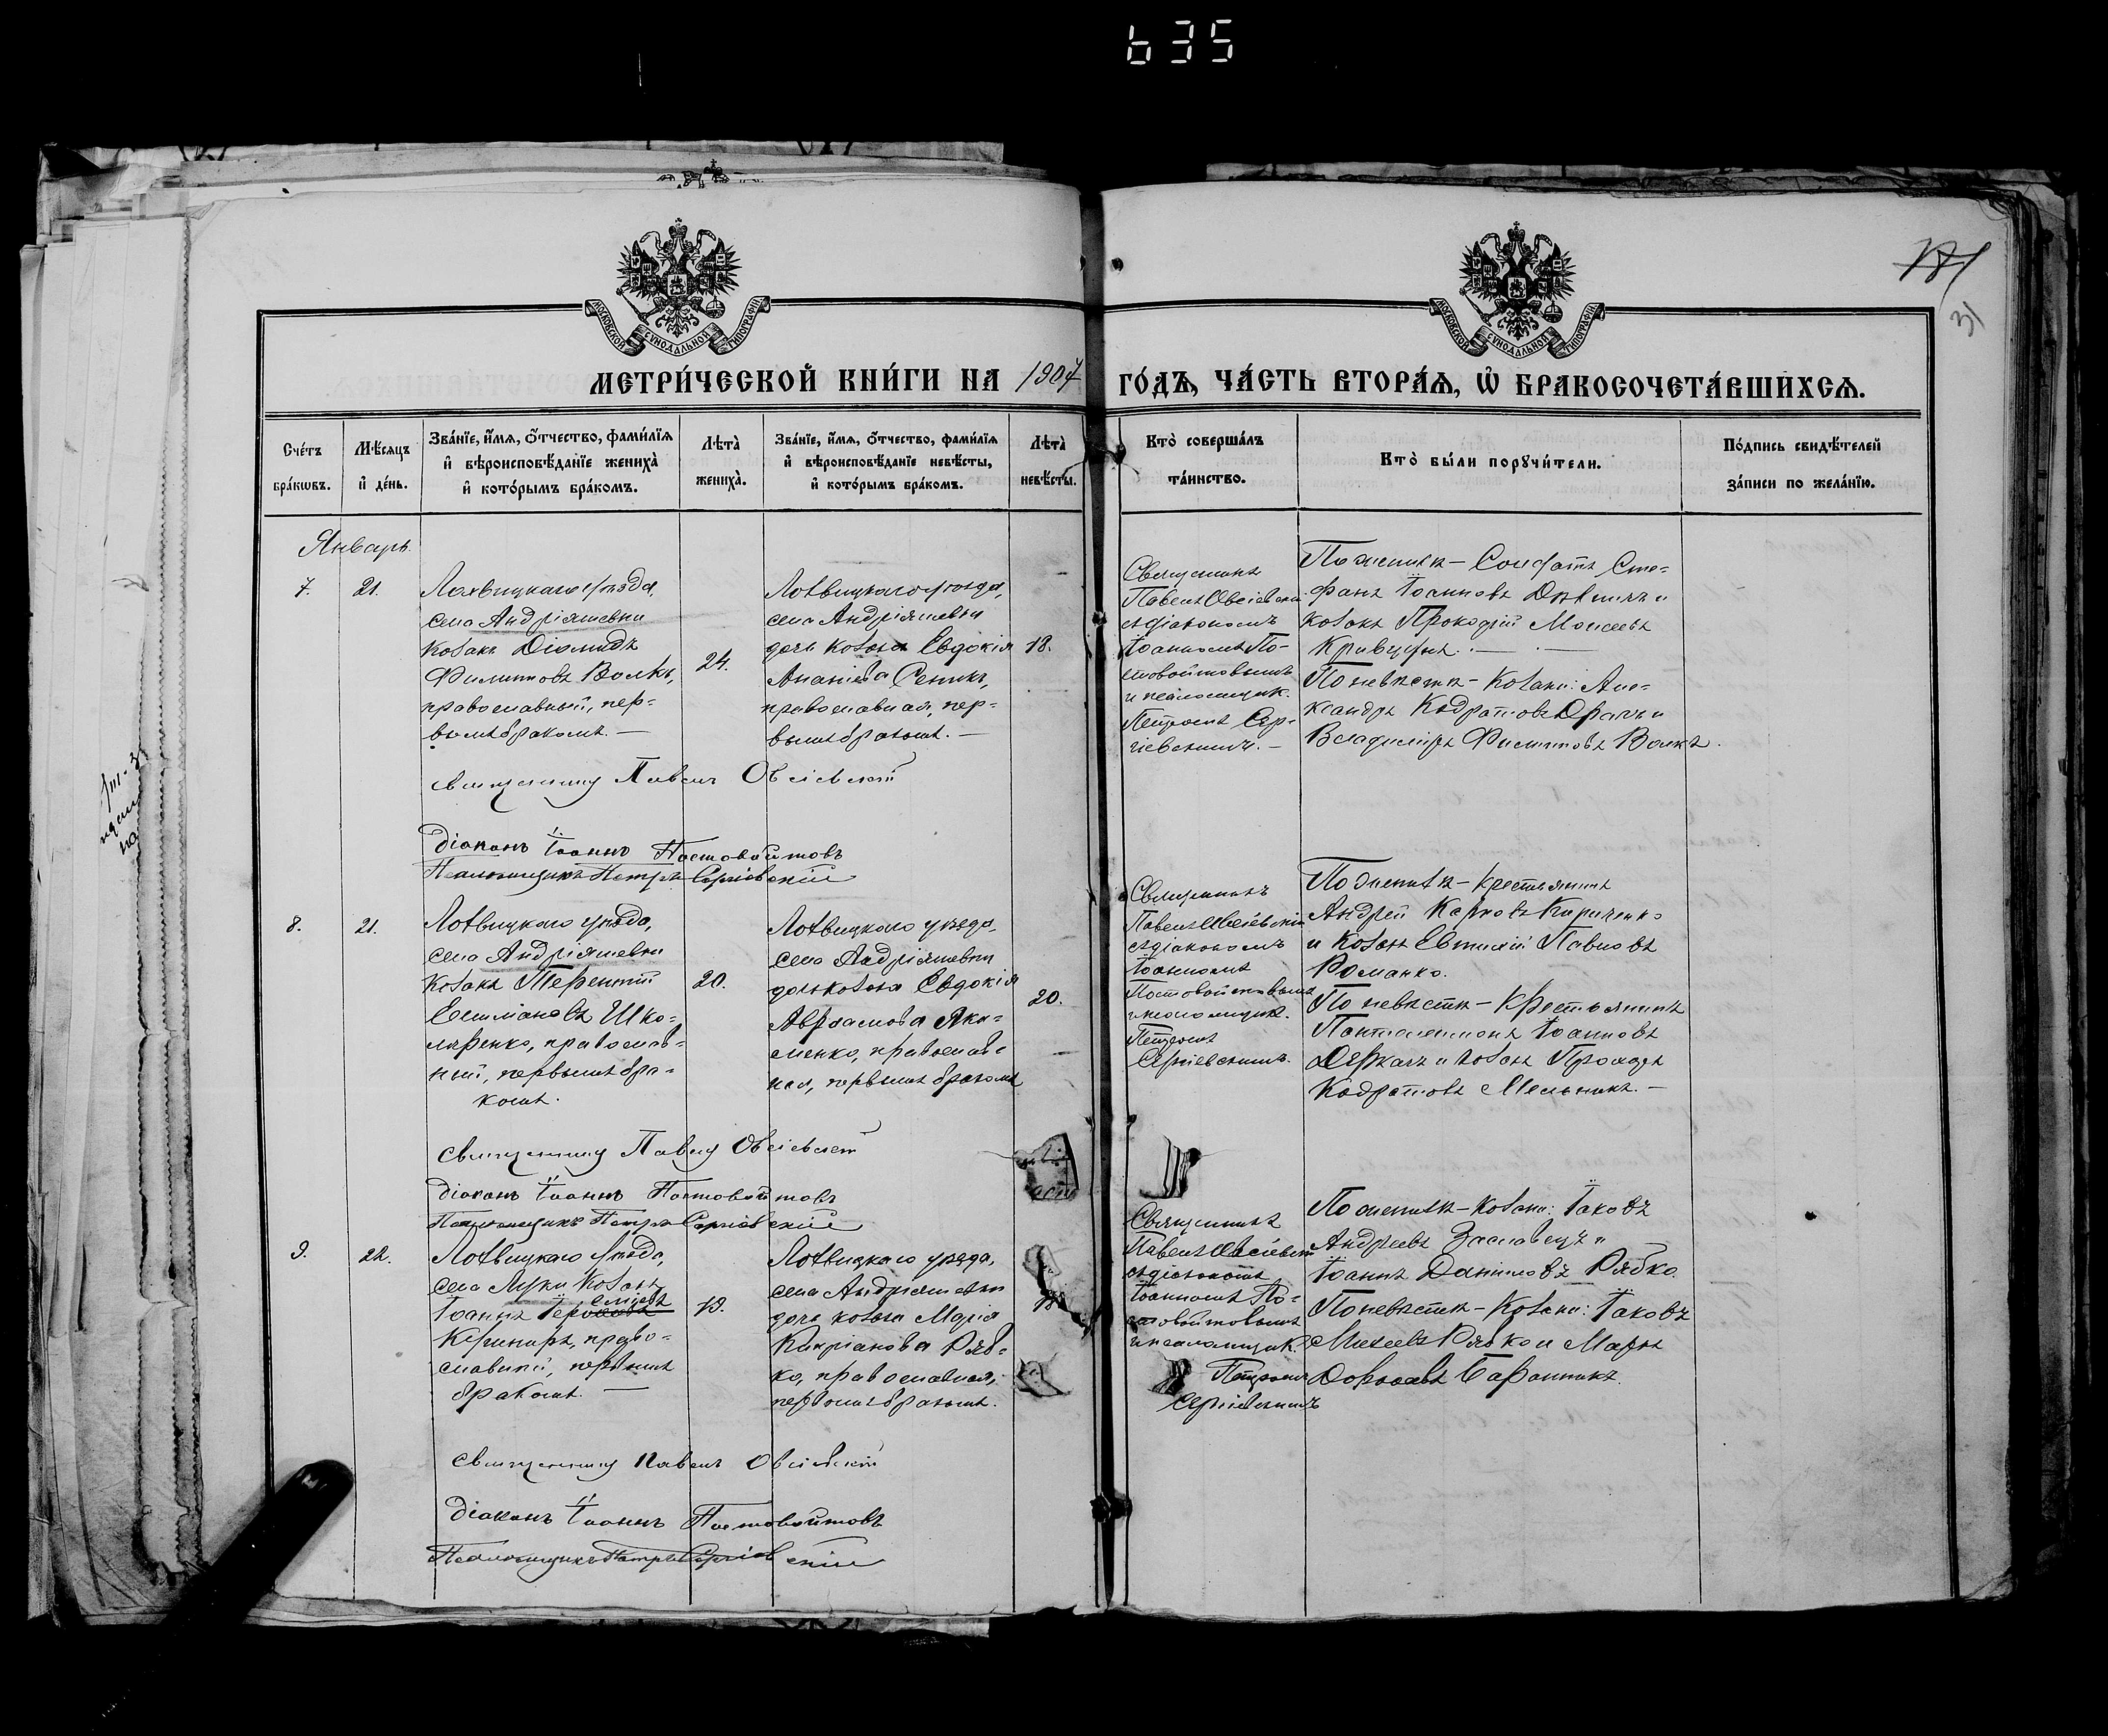 635
МОСКОВСКОЙ СУНОДАЛЬНОЙ ТИПОГРАФІИ
МОСКОВСКОЙ СУНОДАЛЬНОЙ ТИПОГРАФІИ
31
МЕТРИ́ЧЕСКОЙ КНИ́ГИ НА 1904 ГО́ДЪ, ЧА́СТЬ ВТОРА́Я, Ѡ БРАКОСОЧЕТА́ВШИХСЯ.
Сче́тъ бра́кѡвъ.
Мѣ́сяцъ и де́нь.
Зва́нїе, и́мя, ѻ́тчество, фами́лїя и вѣроисповѣ́данїе жениха̀ и кото́рымъ бра́комъ.
Лѣта̀ жениха̀.
Зва́нїе, и́мя, ѻ́тчество, фами́лїя и вѣроисповѣ́данїе невѣ́сты, и кото́рымъ бра́комъ.
Лѣта̀ невѣ́сты.
Кто̀ соверша́лъ та́инство.
Кто̀ бы́ли порꙋчи́тели.
По́дпись свидѣ́телей за́писи по жела́нїю.
Январь.
7.
21.
Лохвицкаго уѣзда,
села Андріяшевки
козакъ Діомидъ
Филиповъ Волкъ,
православный, пер-
вымъ бракомъ. —
24.
Лохвицкаго уѣзда,
села Андріяшевки
дочь козака Евдокія
Ананіева Сеникъ,
православная, пер-
вымъ бракомъ. —
18.
Священникъ
Павелъ Овсіевскій
съ діакономъ
Іоанномъ По-
стовойтовымъ
и псаломщик.
Петромъ Сер-
гіевскимъ. —
По женихѣ — Солдатъ Сте-
фанъ Іоанновъ и
козакъ Прокофій Моисеевъ
По невѣстѣ — козаки: Але-
ксандръ Кодратовъ Драчъ и
Владиміръ Филиповъ Волкъ.
Священникъ Павелъ Овсіевскій
Діаконъ Іоаннъ Постовойтовъ
Псаломщикъ Петръ Сергіевскій
8.
21.
Лохвицкаго уѣзда,
села Андріяшевки
козакъ Терентій
Емиліановъ Шко-
ляренко, православ-
ный, первымъ бра-
комъ.
20.
Лохвицкаго уѣзда,
села Андріяшевки
дочь козака Евдокія
Авраамова Яки-
менко, православ-
ная, первымъ бракомъ
20.
Священникъ
Павелъ Овсіевскій
съ діакономъ
Іоанномъ
Постовойтовымъ
и псаломщик.
Петромъ
Сергіевскимъ.
По женихѣ — крестьянинъ
Андрей Карповъ Кириченко
и козакъ Евтихій Павловъ
Романко.
По невѣстѣ — крестьянинъ
Пантелеимонъ Іоанновъ
Деркачъ и козакъ
Кодратовъ Мельникъ. —
Священникъ Павелъ Овсіевскій
Діаконъ Іоаннъ Постовойтовъ
Псаломщикъ Петръ Сергіевскій
9.
22.
Лохвицкаго уѣзда,
села Луки козакъ
Іоаннъ
православный, первымъ
бракомъ. —
19.
Лохвицкаго уѣзда,
села Андріяшевки
дочь козака Марія
Кипріанова Ряб-
ко, православная,
первымъ бракомъ.
18
Священникъ
Павелъ Овсіевскій
съ діакономъ
Іоанномъ По-
стовойтовымъ
и псаломщик.
Петромъ
Сергіевскимъ
По женихѣ — козаки: Іаковъ
Андреевъ Заславецъ и
Іоаннъ Даніиловъ Рябко.
По невѣстѣ — козаки: Іаковъ
Михеевъ Рябко и Маркъ
Баранникъ.
Священникъ Павелъ Овсіевскій
Діаконъ Іоаннъ Постовойтовъ
Псаломщикъ Петръ Сергіевскій